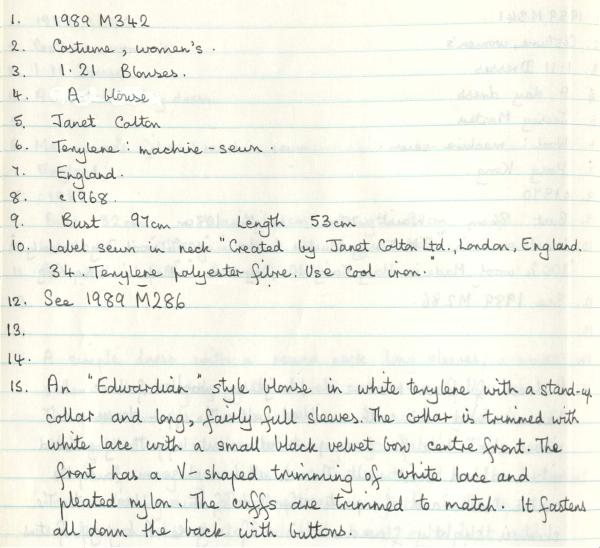 1. 1989 M342
2. Costume, women's.
3. 1.21 Blouses.
4. A blouse
5. Janet Colton
6. Terylene: machine-sewn.
7. England.
8. c1968.
9. Bust 97cm Length 53cm
10. Label sewn in neck "Created by Janet Colton Ltd., London, England.
34. Terylene polyester fibre. Use cool iron."
12. See 1989 M286
13.
14.
15. An "Edwardian" style blouse in white terylene with a stand-up
collar and long, fairly full sleeves. The collar is trimmed with
white lace with a small black velvet bow centre front. The
front has a V-shaped trimming of white lace and
pleated nylon. The cuffs are trimmed to match. It fastens
all down the back with buttons.